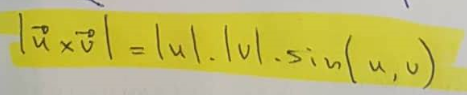 |u⃗ × v⃗| = |u|.|v|.sin(u,v)